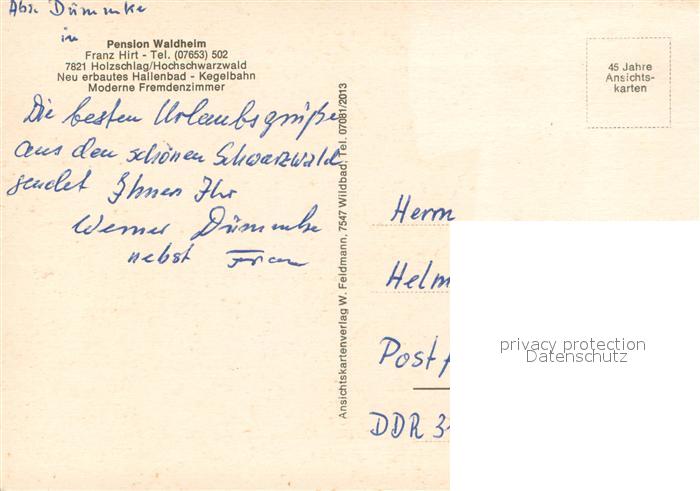 Abs. Dümmke
in
Pension Waldheim
Franz Hirt - Tel. (07653) 502
7821 Holzschlag/Hochschwarzwald
Neu erbautes Hallenbad - Kegelbahn
Moderne Fremdenzimmer
Die besten Urlaubsgrüße
aus den schönen Schwarzwald
sendet Ihnen Ihr
Werner Dümmke
nebst Frau
Ansichtskartenverlag W. Feldmann, 7547 Wildbad, Tel. 07081/2013
45 Jahre
Ansichts-
karten
Herrn
Helm
Postf
DDR 3
privacy protection
Datenschutz